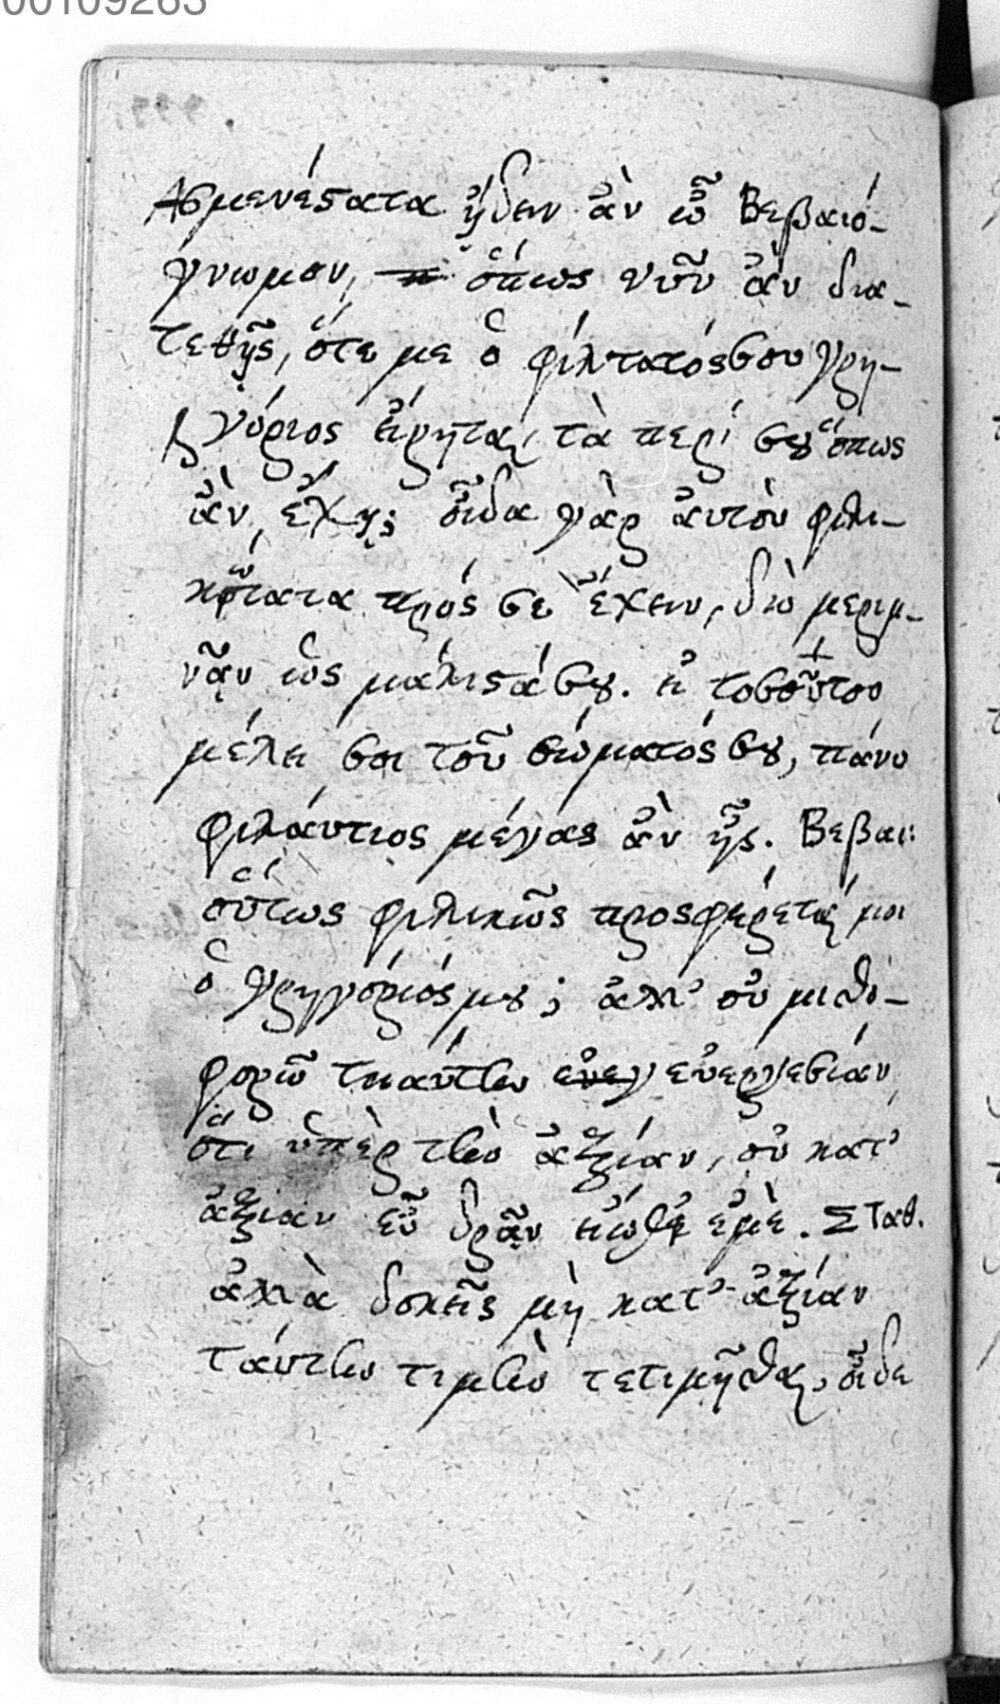 00109263
Ἀσμενέστατα ᾔδειν ἂν ὦ Βεβαιό-
γνωμον, ὅπως νῦν ἂν δια-
τεθῇς, ὅτε με ὁ φίλτατός σου Γρη-
γόριος εἴρηται, τὰ περί σου ὅπως
ἂν ἔχῃς; οἶδα γὰρ ἀυτὸν φιλι-
κώτατα πρός σε ἔχειν, διὸ μεριμ-
νᾷν ὡς μάλιστά σου. εἰ τοσοῦτον
μέλει σοι τοῦ σώματός σου, πάνυ
φιλάυτιος μέγας ἂν ᾖς. Βεβαι:
οὕτως φιλικῶς προσφέρεταί μοι
ὁ Γρηγόριός μου; ἀλλ' οὐ μισθο-
φορῶ τιαύτην εὐεργεσίαν,
ὅτι ὑπὲρ τὴν ἀξίαν, οὐ κατ'
ἀξίαν εὖ δρᾷν εἴωθε ἐμὲ. Σταθ.
ἀλλὰ δοκεῖς μὴ κατ' ἀξίαν
τάυτην τιμὴν τετιμῆσθαι, οἶδε